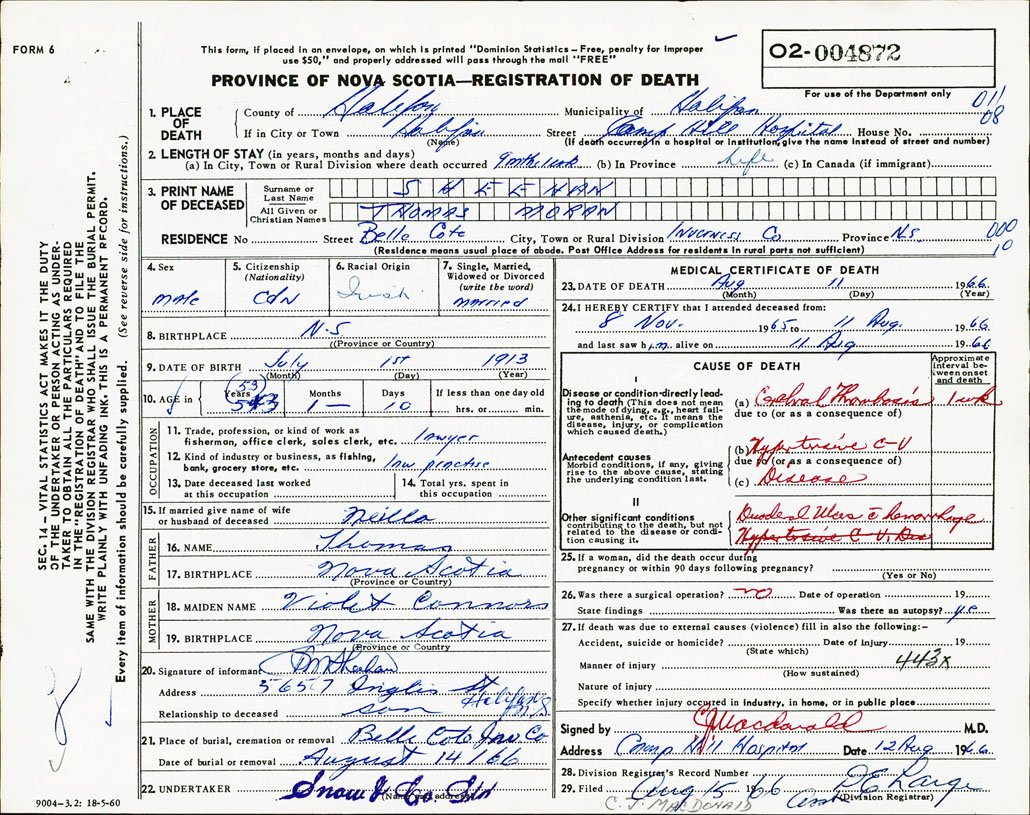 FORM 6
This form, if placed in an envelope, on which is printed "Dominion Statistics – Free, penalty for improper
use $50," and properly addressed will pass through the mail "FREE"
PROVINCE OF NOVA SCOTIA—REGISTRATION OF DEATH
O2-004872
For use of the Department only
011
08
1. PLACE OF DEATH
County of Halifax Municipality of Halifax
If in City or Town Halifax Street Camp Hill Hospital House No.
(Name) (If death occurred in a hospital or institution, give the name instead of street and number)
2. LENGTH OF STAY (in years, months and days)
(a) In City, Town or Rural Division where death occurred 9 mth 1 wk (b) In Province Life (c) In Canada (if immigrant)
3. PRINT NAME OF DECEASED
Surname or Last Name SHEEHAN
All Given or Christian Names THOMAS MORAN
RESIDENCE No Street Belle Cote City, Town or Rural Division Inverness Co Province N.S.
(Residence means usual place of abode. Post Office Address for residents in rural parts not sufficient)
000
10
4. Sex
male
5. Citizenship
(Nationality)
CDN
6. Racial Origin
Irish
7. Single, Married,
Widowed or Divorced
(write the word)
married
8. BIRTHPLACE N.S
(Province or Country)
9. DATE OF BIRTH July 1st 1913
(Month) (Day) (Year)
10. AGE in Years 53 Months 1 – Days 10 If less than one day old
hrs. or min.
OCCUPATION
11. Trade, profession, or kind of work as
fisherman, office clerk, sales clerk, etc. lawyer
12. Kind of industry or business, as fishing,
bank, grocery store, etc. law practise
13. Date deceased last worked
at this occupation
14. Total yrs. spent in
this occupation
15. If married give name of wife
or husband of deceased Neilla
FATHER
16. NAME Thomas
17. BIRTHPLACE Nova Scotia
(Province or Country)
MOTHER
18. MAIDEN NAME Violet Connors
19. BIRTHPLACE Nova Scotia
(Province or Country)
20. Signature of informant Sheehan
Address 5657 Inglis St
Halifax N.S.
Relationship to deceased son
21. Place of burial, cremation or removal Belle Cote Inv Co
Date of burial or removal August 14/66
22. UNDERTAKER Snow & Co Ltd
(Name and address)
9004-3.2: 18-5-60
MEDICAL CERTIFICATE OF DEATH
23. DATE OF DEATH Aug 11 1966
(Month) (Day) (Year)
24. I HEREBY CERTIFY that I attended deceased from:
8 Nov. 1965 to 11 Aug. 1966
and last saw him alive on 11 Aug 1966
CAUSE OF DEATH
Approximate
interval be-
tween onset
and death
I
Disease or condition-directly lead-
ing to death (This does not mean
the mode of dying, e.g., heart fail-
ure, asthenia, etc. It means the
disease, injury, or complication
which caused death.)
(a) Cerebral Thrombosis 1 wk
due to (or as a consequence of)
Antecedent causes
Morbid conditions, if any, giving
rise to the above cause, stating
the underlying condition last.
(b) Hypertensive C-V
due to (or as a consequence of)
(c) Disease
II
Other significant conditions
contributing to the death, but not
related to the disease or condi-
tion causing it.
Duodenal Ulcer c hemorrhage
Hypertensive C-V. Dis
25. If a woman, did the death occur during
pregnancy or within 90 days following pregnancy?
(Yes or No)
26. Was there a surgical operation? no Date of operation 19
State findings Was there an autopsy?
27. If death was due to external causes (violence) fill in also the following:–
Accident, suicide or homicide? Date of injury 19
(State which)
Manner of injury 443x
(How sustained)
Nature of injury
Specify whether injury occurred in industry, in home, or in public place
Signed by CJ Macdonald M.D.
Address Camp Hill Hospital Date 12 Aug 1966
28. Division Registrar's Record Number
29. Filed Aug 15 1966
(Division Registrar)
C. J. MACDONALD
SEC. 14 – VITAL STATISTICS ACT MAKES IT THE DUTY
OF THE UNDERTAKER OR PERSON ACTING AS UNDER-
TAKER TO OBTAIN ALL THE PARTICULARS REQUIRED
IN THE "REGISTRATION OF DEATH" AND TO FILE THE
SAME WITH THE DIVISION REGISTRAR WHO SHALL ISSUE THE BURIAL PERMIT.
WRITE PLAINLY WITH UNFADING INK. THIS IS A PERMANENT RECORD.
Every item of information should be carefully supplied. (See reverse side for instructions.)